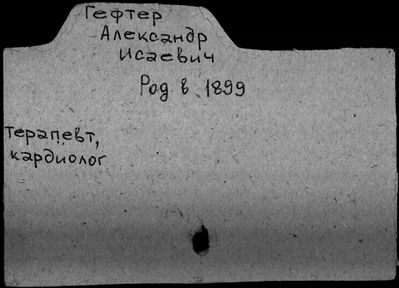 Гефтер
Александр
Исаевич
Род в 1899
терапевт,
кардиолог